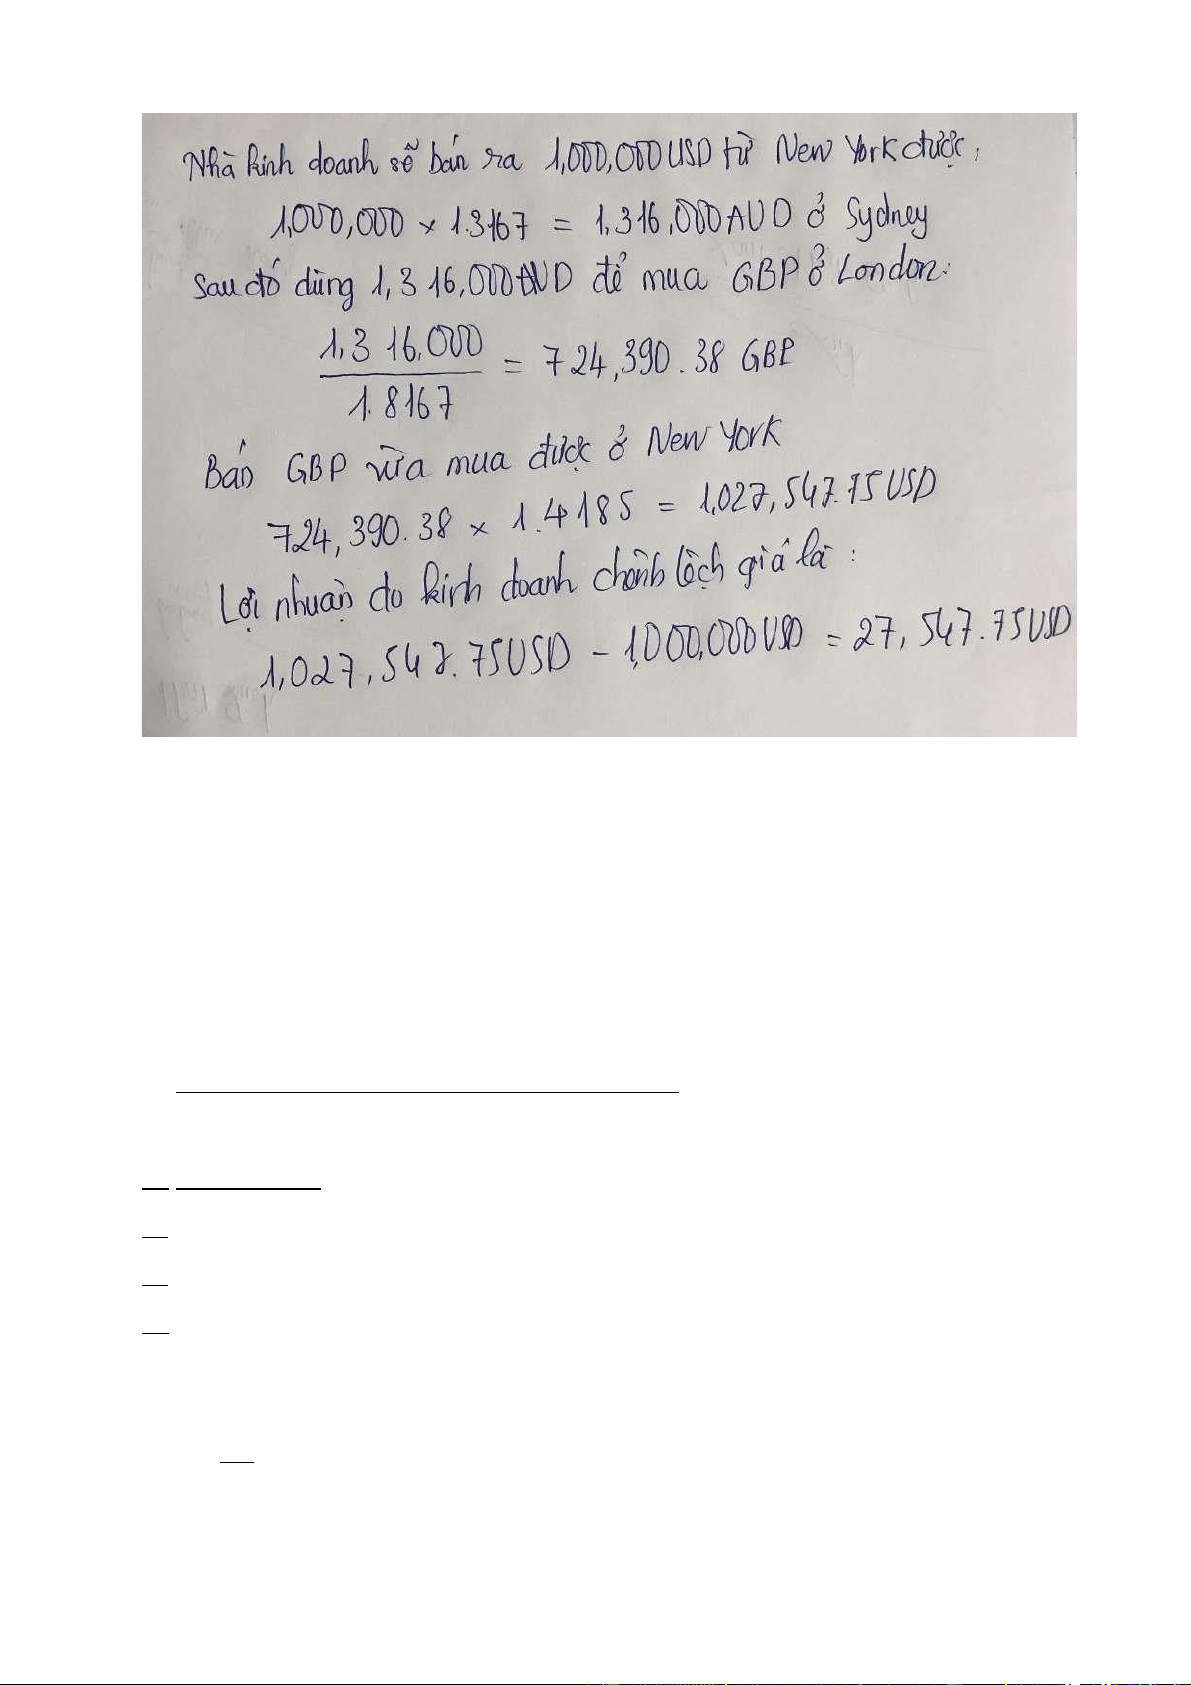 Nhà kinh doanh sẽ bán ra 1,000,000 USD từ New York được:
1,000,000 × 1.3167 = 1,316,000 AUD ở Sydney
Sau đó dùng 1,316,000 AUD để mua GBP ở London:
1,316,000
= 724,390.38 GBP
1.8167
Bán GBP vừa mua được ở New York
724,390.38 × 1.4185 = 1,027,547.75 USD
Lợi nhuận do kinh doanh chênh lệch giá là:
1,027,547.75 USD – 1,000,000 USD = 27,547.75 USD